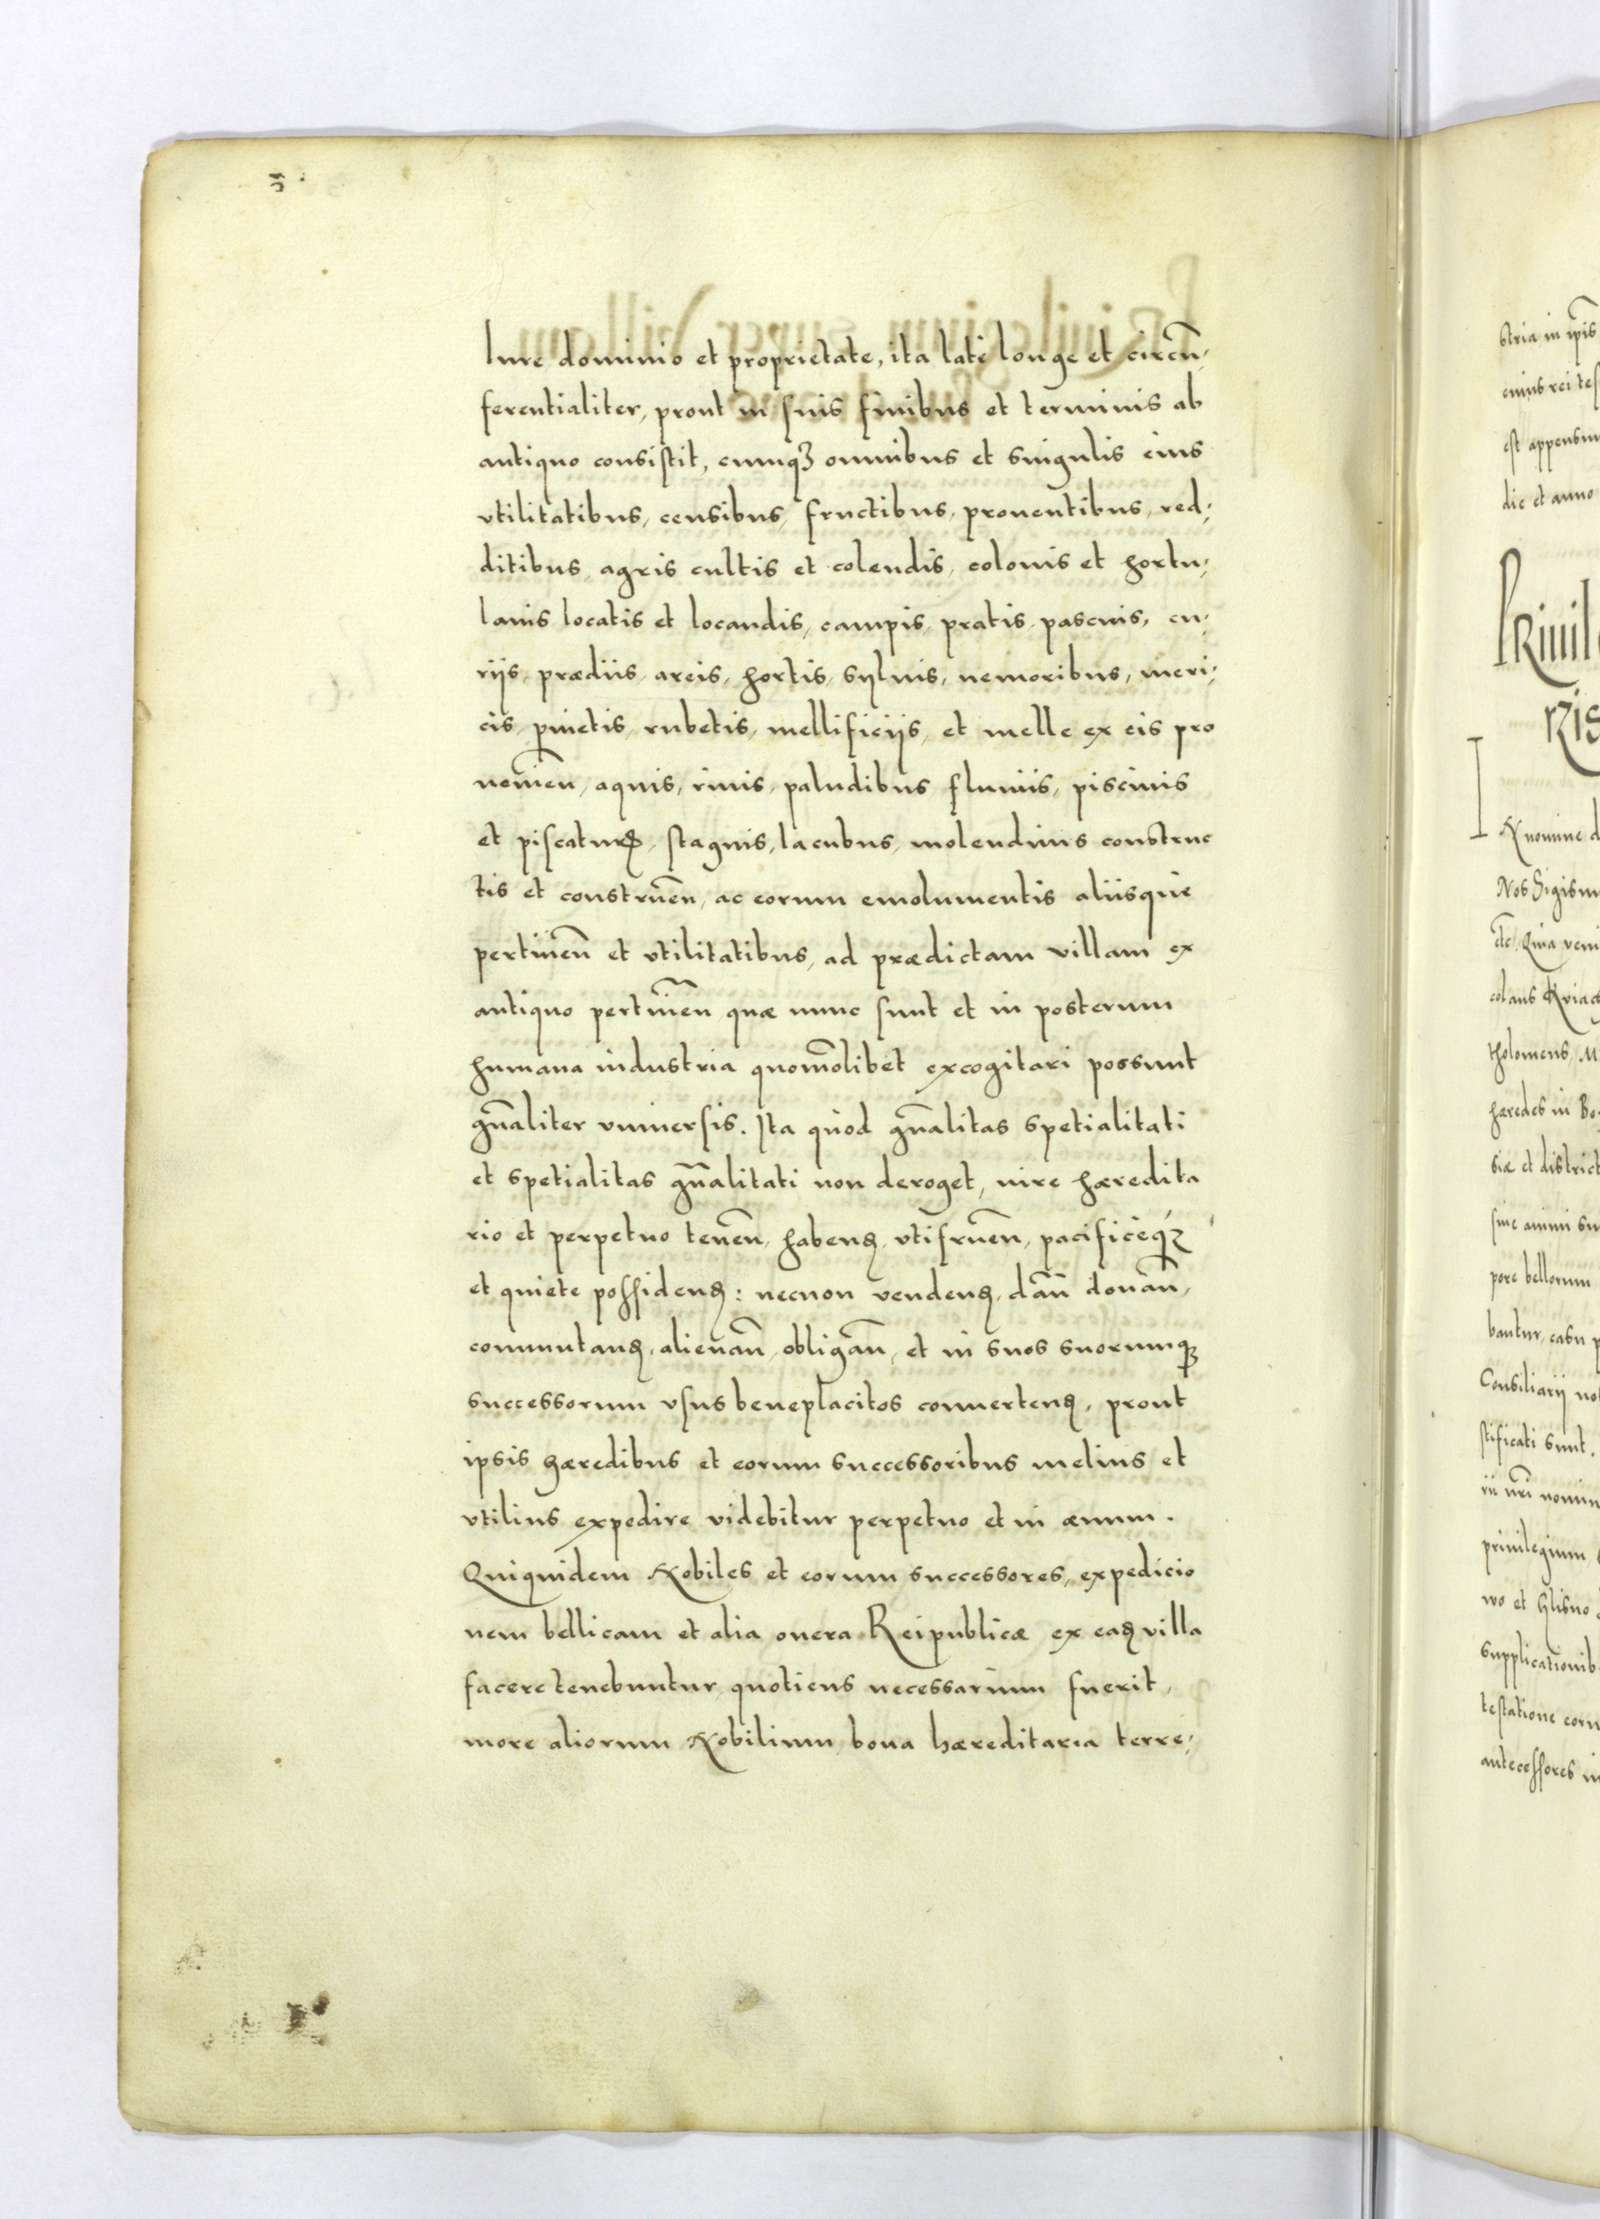 Iure dominio et proprietate, ita late longe et circū,
ferentialiter, prout in suis finibus et terminis ab
antiquo consistit, cumqꝫ omnibus et singulis eius
vtilitatibus, censibus, fructibus, prouentibus, red,
ditibus, agris cultis et colendis, colonis et hortu,
lanis locatis et locandis, campis, pratis, pascuis, cu,
rijs, prædiis, areis, hortis, syluis, nemoribus, meri,
cis, pinetis, rubetis, mellificijs, et melle ex eis pro
ueniēn, aquis, riuis, paludibus fluuiis, piscinis
et piscatur, stagnis, lacubus, molendinis construc
tis et construēn, ac eorum emolumentis aliisque
pertinēn et vtilitatibus, ad prædictam villam ex
antiquo pertinēn quæ nunc sunt et in posterum
humana industria quomōlibet excogitari possunt
gn̄aliter vniuersis. Ita quòd gn̄alitas spetialitati
et spetialitas gn̄alitati non deroget, iure hæredita
rio et perpetuo tenēn, habenꝰ, vtifruēn, pacificèqꝫ
et quiete possidenꝰ: necnon vendenꝰ, dān donān,
commutanꝰ, alienān, obligān, et in suos suorumqꝫ
successorum vsus beneplacitos conuertenꝰ, prout
ipsis hæredibus et eorum successoribus melius et
vtilius expedire videbitur perpetuo et in æuum.
Quiquidem Nobiles et eorum successores, expedicio
nem bellicam et alia onera Reipublicæ ex eaꝰ villa
facere tenebuntur, quotiens necessarium fuerit,
more aliorum Nobilium, bona hæreditaria terre,
stria in ip̄is
cuius rei tes
est appensum
die et anno
PRiuil
RIS
IN nomine d
Nos Sigism
etc. Quia veni
colaus
tholomeus, M
hæredes in Bo
siæ et district
siue animi su
pore bellorum
bantur, casu p
Consiliarij no
stificati sunt.
rii nr̄i nomin
priuilegium
wo et Glisno
supplicationib
testatione eoru
antecessores in